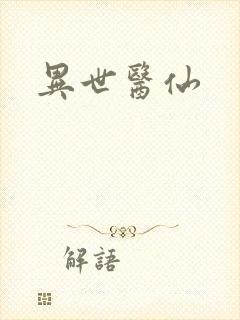 異世醫仙
解語